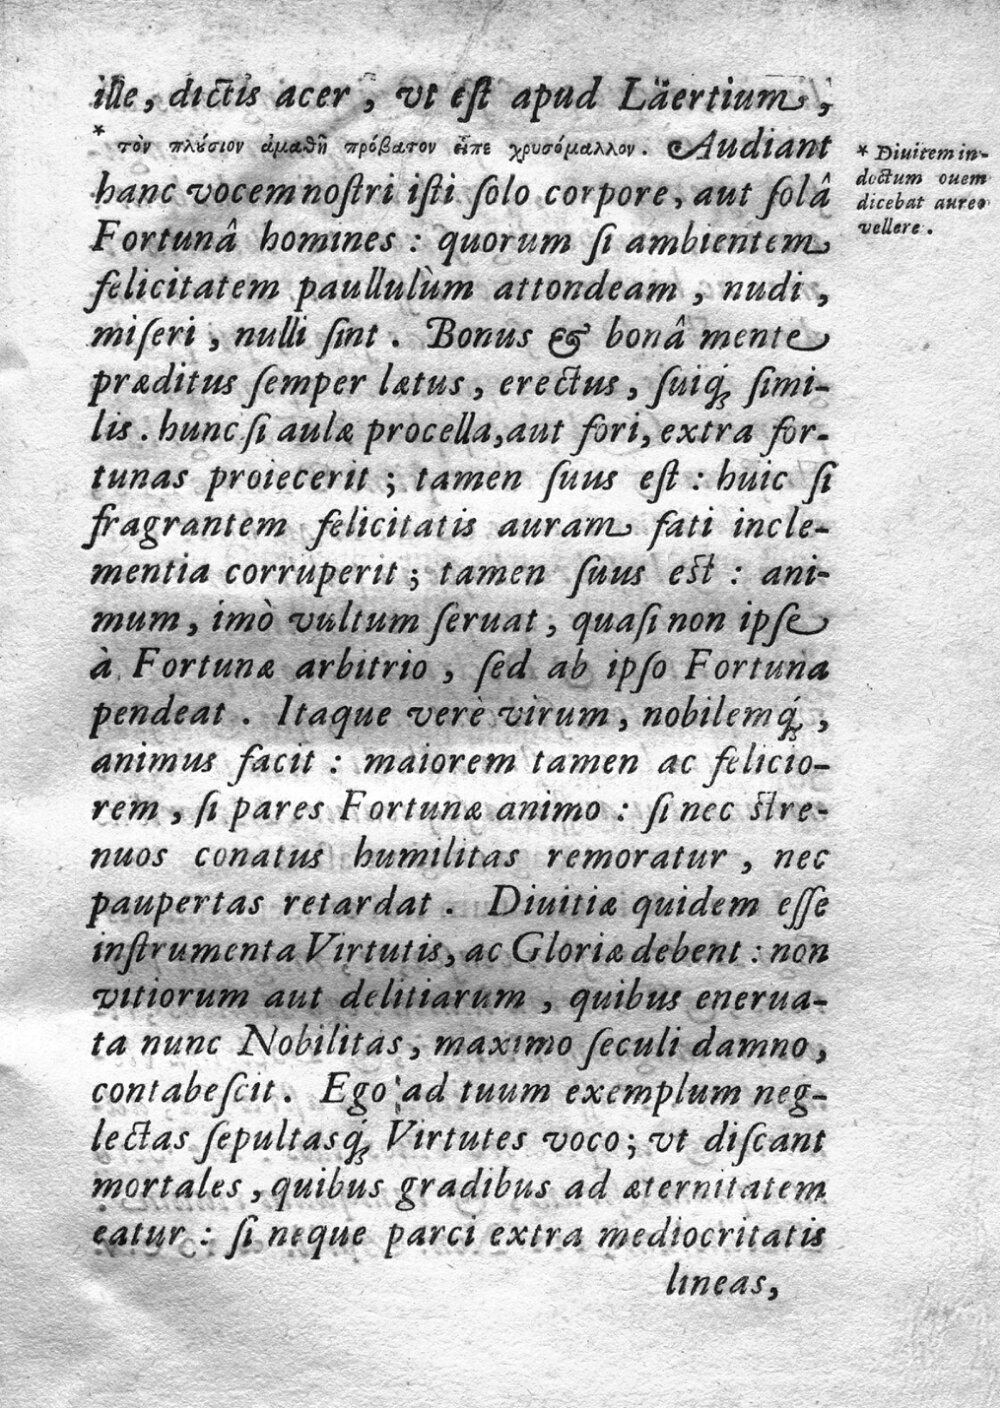 ille, dictis acer, vt est apud Läertium,
* τὸν πλούσιον ἀμαθῆ πρόβατον εἶπε χρυσόμαλλον. Audiant
hanc vocem nostri isti solo corpore, aut solâ
Fortunâ homines : quorum si ambientem
felicitatem paullulùm attondeam, nudi,
miseri, nulli sint. Bonus & bonâ mente
præditus semper lætus, erectus, suiq́; simi-
lis. hunc si aulæ procella, aut fori, extra for-
tunas proiecerit ; tamen suus est : huic si
fragrantem felicitatis auram fati incle-
mentia corruperit ; tamen suus est : ani-
mum, imò vultum seruat, quasi non ipse
à Fortunæ arbitrio, sed ab ipso Fortuna
pendeat. Itaque verè virum, nobilemq́;,
animus facit : maiorem tamen ac felicio-
rem, si pares Fortunæ animo : si nec stre-
nuos conatus humilitas remoratur, nec
paupertas retardat. Diuitiæ quidem esse
instrumenta Virtutis, ac Gloriæ debent : non
vitiorum aut delitiarum, quibus enerua-
ta nunc Nobilitas, maximo seculi damno,
contabescit. Ego ad tuum exemplum neg-
lectas sepultasq́; Virtutes voco; vt discant
mortales, quibus gradibus ad æternitatem
eatur : si neque parci extra mediocritatis
lineas,
* Diuitem in-
doctum ouem
dicebat aureo
vellere.